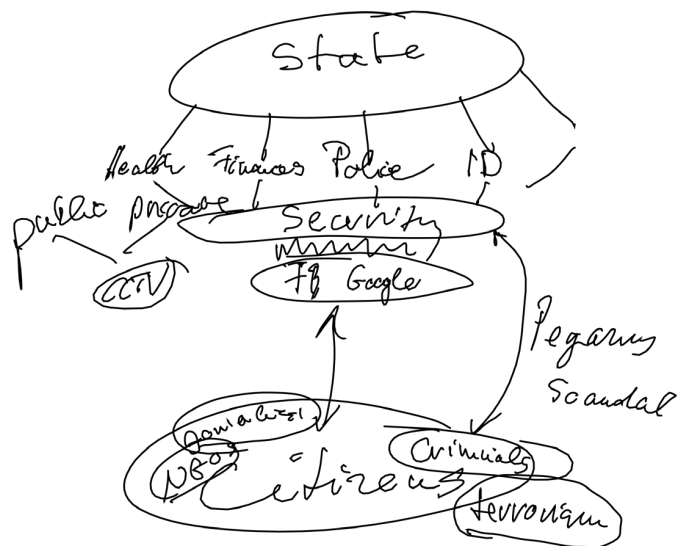 State
Health Finances Police ID
public private
Security
CCTV
FB Google
Pegasus
Scandal
Journalists
NGOs
Criminals
Citizens
terrorism